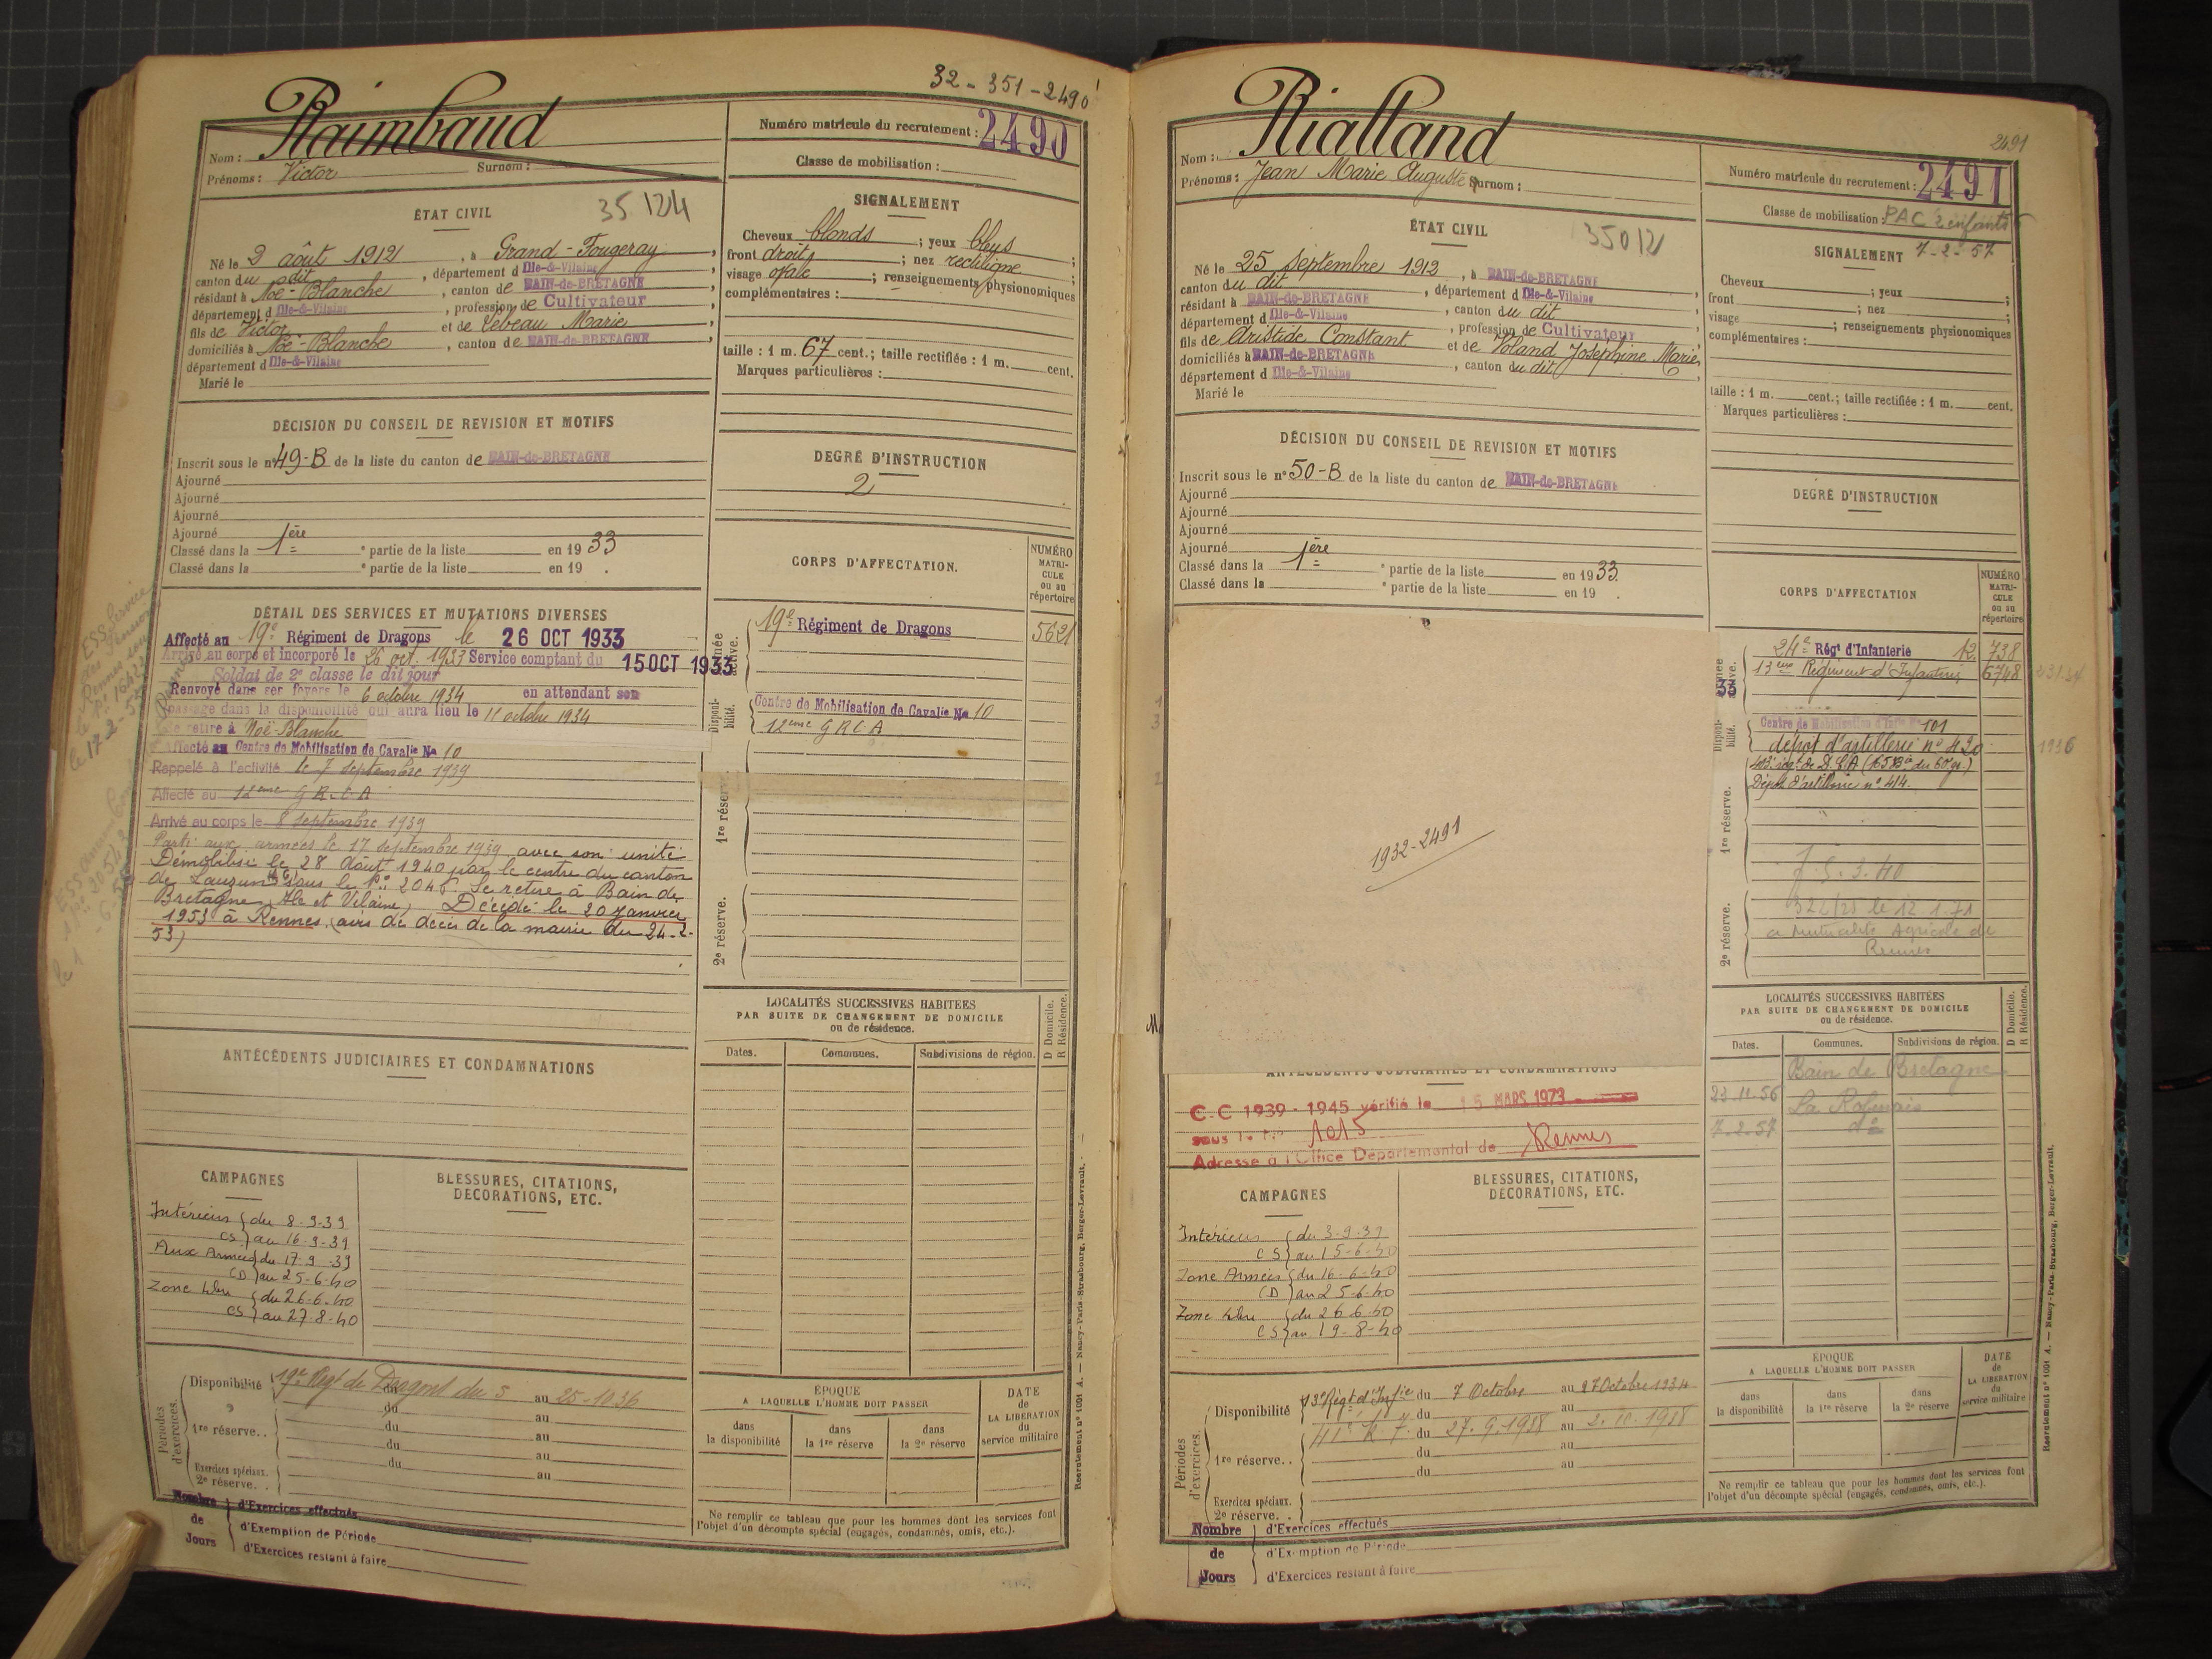 32-351-2490
Nom : Raimbaud
Prénoms : Victor Surnom :
Numéro matricule du recrutement : 2490
Classe de mobilisation :
ÉTAT CIVIL
35124
Né le 3 août 1912, à Grand-Fougeray,
canton du dit, département d'Ille-&-Vilaine,
résidant à Noë-Blanche, canton de BAIN-de-BRETAGNE,
département d'Ille-&-Vilaine, profession de Cultivateur
fils de Victor et de Lebeau Marie,
domiciliés à Noë-Blanche, canton de BAIN-de-BRETAGNE,
département d'Ille-&-Vilaine
Marié le
SIGNALEMENT
Cheveux blonds ; yeux bleus ;
front droit ; nez rectiligne ;
visage ovale ; renseignements physionomiques
complémentaires :
taille : 1 m. 67 cent.; taille rectifiée : 1 m. cent.
Marques particulières :
DÉCISION DU CONSEIL DE REVISION ET MOTIFS
Inscrit sous le n° 49-B de la liste du canton de BAIN-de-BRETAGNE
Ajourné
Ajourné
Ajourné
Ajourné
Classé dans la 1ère partie de la liste en 1933
Classé dans la e partie de la liste en 19 .
DEGRÉ D'INSTRUCTION
2
DÉTAIL DES SERVICES ET MUTATIONS DIVERSES
Affecté au 19e Régiment de Dragons le 26 OCT 1933
Arrivé au corps et incorporé le 26 oct. 1933 Service comptant du 15 OCT 1933
Soldat de 2e classe le dit jour
Renvoyé dans ses foyers le 6 octobre 1934 en attendant son
passage dans la disponibilité qui aura lieu le 11 octobre 1934
Se retire à Noë-Blanche
Affecté au Centre de Mobilisation de Cavalie No 10
Rappelé à l'activité le 7 septembre 1939
Affecté au 12eme G R C A
Arrivé au corps le 8 septembre 1939
Parti aux armées le 17 septembre 1939 avec son unité
Démobilisé le 28 Août 1940 par le centre du canton
de Lauzun sous le n° 2046. Se retire à Bain de
Bretagne, Ille et Vilaine, Décédé le 20 janvier
1953 à Rennes. (avis de décès de la mairie du 24-2-
53)
CORPS D'AFFECTATION.
NUMÉRO MATRICULE ou au répertoire
Armée active.
19e Régiment de Dragons 5621
Disponibilité.
Centre de Mobilisation de Cavalie No 10
12eme G R C A
1re réserve
2e réserve.
LOCALITÉS SUCCESSIVES HABITÉES
PAR SUITE DE CHANGEMENT DE DOMICILE
ou de résidence.
D Domicile.
R Résidence.
Dates. Communes. Subdivisions de région.
ANTÉCÉDENTS JUDICIAIRES ET CONDAMNATIONS
CAMPAGNES
Intérieur du 8-9-39
CS au 16-9-39
Aux Armées du 17-9-39
CD au 25-6-40
Zone libre du 26-6-40
CS au 27-8-40
BLESSURES, CITATIONS,
DÉCORATIONS, ETC.
Périodes d'exercices.
Disponibilité 19e Régt de Dragons du 5 au 25-10-36
du au
1re réserve.. du au
du au
du au
Exercices spéciaux.
2e réserve. . au
Nombre de Jours
d'Exercices effectués
d'Exemption de Période
d'Exercices restant à faire
ÉPOQUE
A LAQUELLE L'HOMME DOIT PASSER
dans la disponibilité
dans la 1re réserve
dans la 2e réserve
DATE de LA LIBÉRATION du service militaire
Ne remplir ce tableau que pour les hommes dont les services font
l'objet d'un décompte spécial (engagés, condamnés, omis, etc.).
Recrutement n° 1001 A. — Nancy-Paris-Strasbourg, Berger-Levrault.
2491
Nom : Rialland
Prénoms : Jean Marie Auguste Surnom :
Numéro matricule du recrutement : 2491
Classe de mobilisation : PAC 2 enfants
7-2-57
ÉTAT CIVIL
35012
Né le 25 septembre 1912, à BAIN-de-BRETAGNE
canton du dit, département d'Ille-&-Vilaine
résidant à BAIN-de-BRETAGNE, canton du dit
département d'Ille-&-Vilaine, profession de Cultivateur
fils de Aristide Constant et de Voland Joséphine Marie,
domiciliés à BAIN-de-BRETAGNE, canton du dit,
département d'Ille-&-Vilaine
Marié le
SIGNALEMENT
Cheveux ; yeux ;
front ; nez ;
visage ; renseignements physionomiques
complémentaires :
taille : 1 m. cent.; taille rectifiée : 1 m. cent.
Marques particulières :
DÉCISION DU CONSEIL DE REVISION ET MOTIFS
Inscrit sous le n° 50-B de la liste du canton de BAIN-de-BRETAGNE
Ajourné
Ajourné
Ajourné
Ajourné
Classé dans la 1ère partie de la liste en 1933.
Classé dans la e partie de la liste en 19 .
DEGRÉ D'INSTRUCTION
1932-2491
CORPS D'AFFECTATION
NUMÉRO MATRICULE ou au répertoire
24e Régt d'Infanterie 12. 738
13eme Régiment d'Infanterie 6748
Disponibilité.
Centre de Mobilisation d'Infie No 101
dépôt d'artillerie n° 420 1936
403e régt de D.C.A (658 Bie du 60 gr.)
Dépôt d'artillerie n° 414.
1re réserve.
2e réserve.
le 12.1.71
a Mutualité Agricole de
Rennes
LOCALITÉS SUCCESSIVES HABITÉES
PAR SUITE DE CHANGEMENT DE DOMICILE
ou de résidence.
D Domicile.
R Résidence.
Dates. Communes. Subdivisions de région.
Bain de Bretagne
23-11-56
7-2-57 do
ANTÉCÉDENTS JUDICIAIRES ET CONDAMNATIONS
C.C 1939-1945 vérifié le 15 MARS 1973
sous le No 1015
Adressé à l'Office Départemental de Rennes
CAMPAGNES
Intérieur du 3-9-39
CS au 15-6-40
Zone Armées du 16-6-40
CD au 25-6-40
Zone libre du 26-6-40
CS au 19-8-40
BLESSURES, CITATIONS,
DÉCORATIONS, ETC.
Périodes d'exercices.
Disponibilité 13e Régt d'Infie du 7 Octobre au 27 Octobre 1934
du au
41e R I. du 27.9.1938 au 2.10.1938
1re réserve.. du au
du au
Exercices spéciaux.
2e réserve. .
Nombre de Jours
d'Exercices effectués
d'Exemption de Période
d'Exercices restant à faire
ÉPOQUE
A LAQUELLE L'HOMME DOIT PASSER
dans la disponibilité
dans la 1re réserve
dans la 2e réserve
DATE de LA LIBÉRATION du service militaire
Ne remplir ce tableau que pour les hommes dont les services font
l'objet d'un décompte spécial (engagés, condamnés, omis, etc.).
Recrutement n° 1001 A. — Nancy-Paris-Strasbourg, Berger-Levrault.